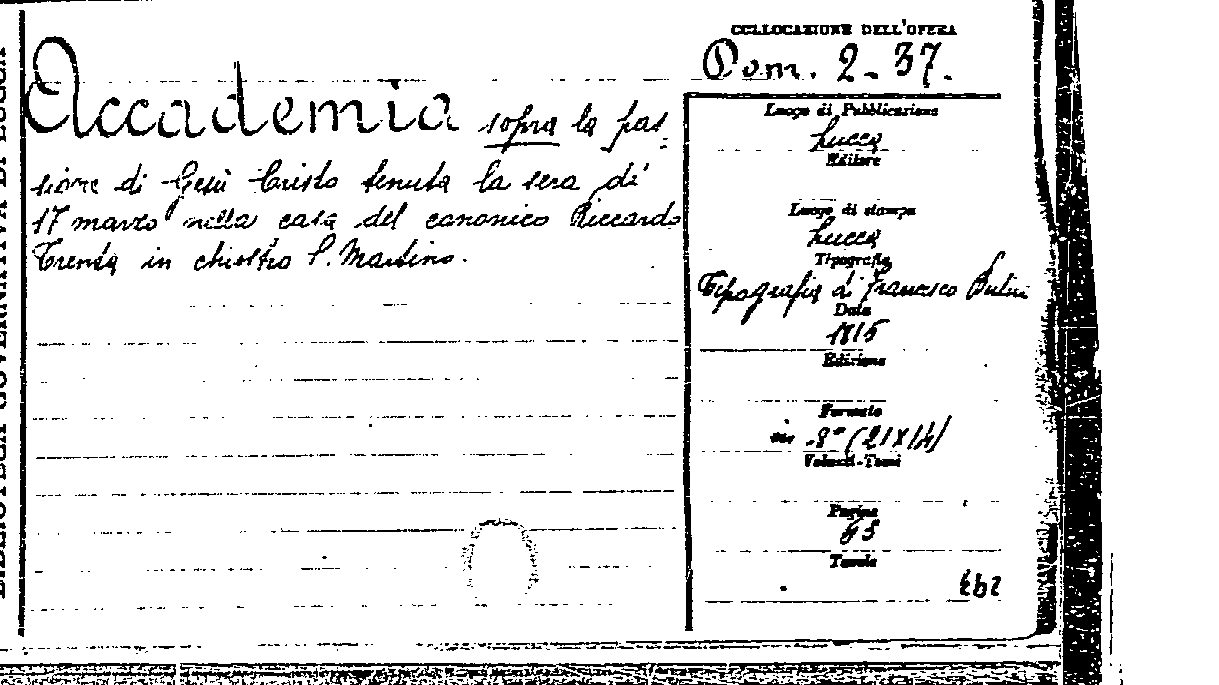 BIBLIOTECA GOVERNATIVA DI LUCCA
COLLOCAZIONE DELL'OPERA
Dom. 2-37.
Accademia sopra la pas-
sione di Gesù Cristo tenuta la sera di
17 marzo nella casa del canonico Riccardo
Trenta in chiostro S. Martino.
Luogo di Pubblicazione
Lucca
Editore
Luogo di stampa
Lucca
Tipografia
Tipografia di Francesco
Data
1815
Edizione
Formato
in 8° (21x14)
Volumi-Tomi
Pagine
Tavole